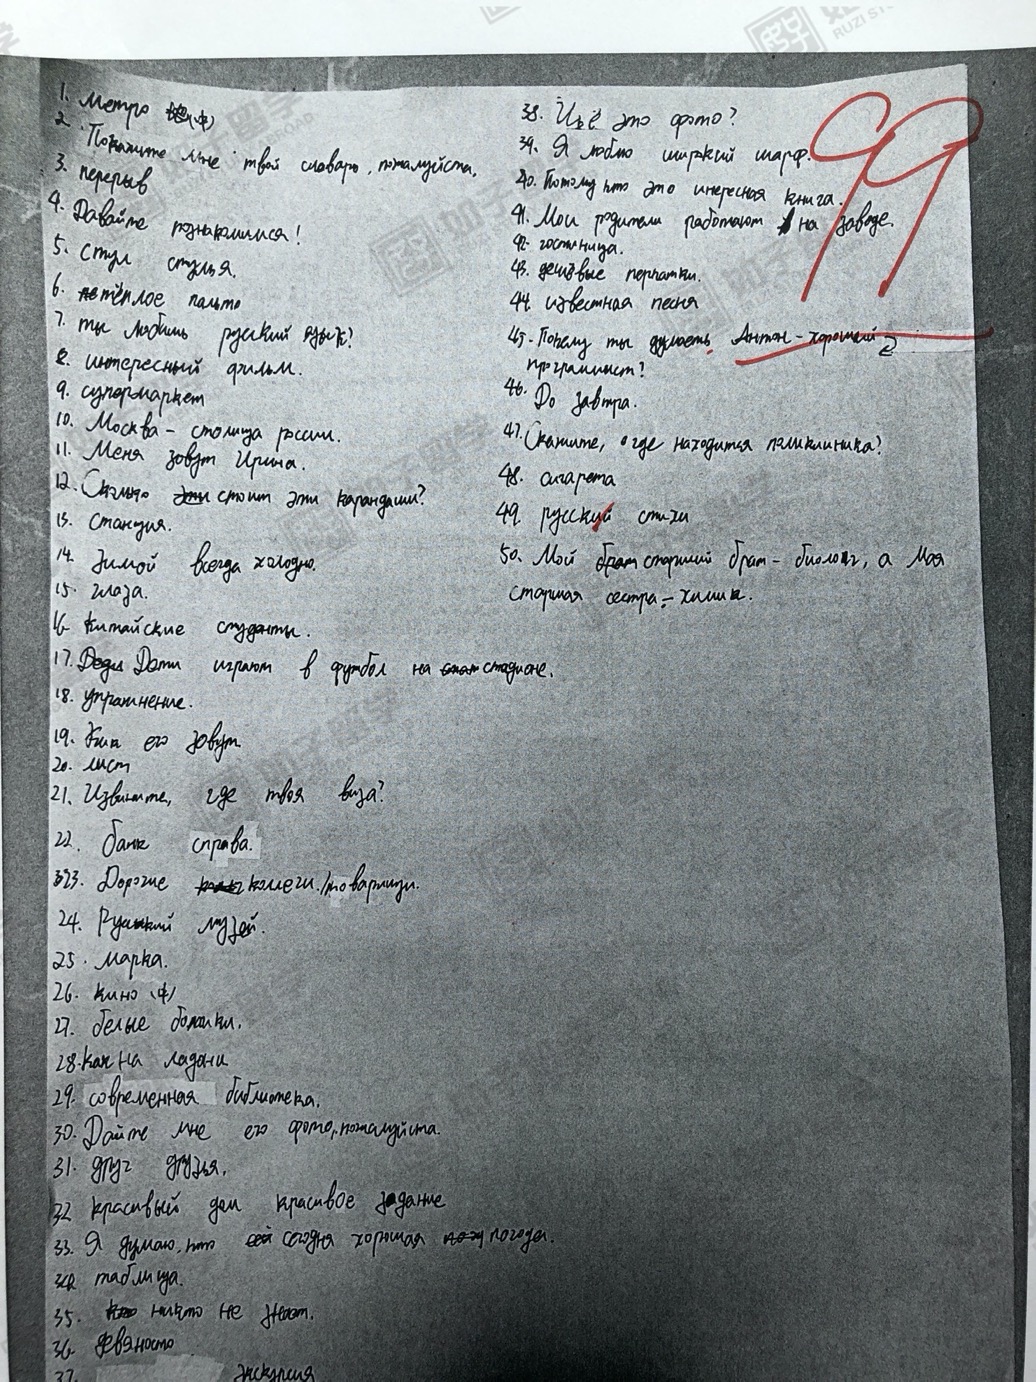 1. Метро (中)
2. Покажите мне твой словарь, пожалуйста.
3. перерыв
4. Давайте познакомимся!
5. Стул стулья.
6. тёплое пальто
7. ты любишь русский язык?
8. интересный фильм.
9. супермаркет
10. Москва - столица россии.
11. Меня зовут Ирина.
12. Сколько стоит эти карандаши?
13. Станция.
14. Зимой всегда холодно.
15. глаза.
16. Китайские студенты.
17. Дети играют в футбол на стадионе.
18. упражнение.
19. Как его зовут
20. лист
21. Извините, где твоя виза?
22. банк справа.
23. Дорогие коллеги./товарищи.
24. Русский музей.
25. марка.
26. кино (中)
27. белые
28. как на ладони
29. современная библиотека.
30. Дайте мне его фото, пожалуйста.
31. друг друзья.
32 красивый дом красивое здание
33. Я думаю, что сегодня хорошая погода.
34 таблица.
35. никто не знает.
36 девяносто
37. экскурсия
38. Чьё это фото?
39. Я люблю широкий шарф.
40. Потому что это инересная книга.
41. Мои родители работают на заводе.
42. гостиница.
43. дешёвые перчатки.
44. известная песня
45. Почему ты думаешь, Антон - хороший
программист?
46. До завтра.
47. Скажите, где находится поликлиника?
48. сигарета
49. русский стихи
50. Мой старший брат - биолог, а моя
старшая сестра - химик.
99
如子留学
RUZI STUDY ABROAD